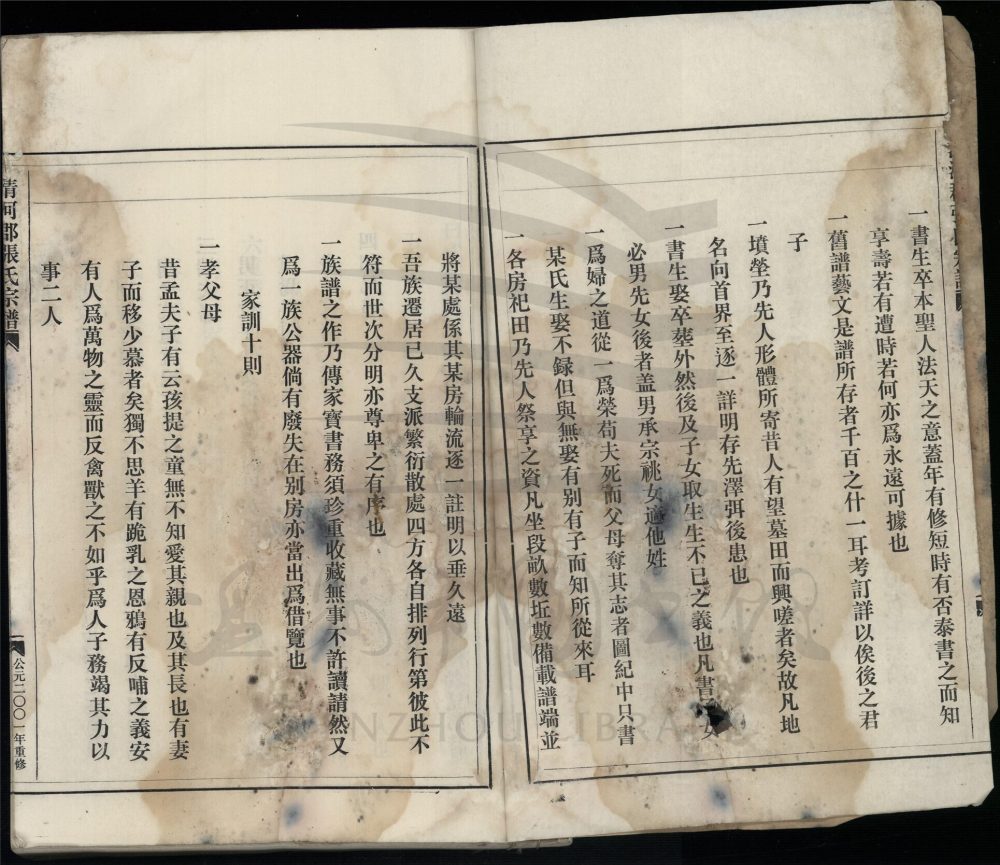 一書生卒本聖人法天之意蓋年有修短時有否泰書之而知
享壽若有遭時若何亦爲永遠可據也
一舊譜藝文是譜所存者千百之什一耳考訂詳以俟後之君
子
一墳塋乃先人形體所寄昔人有望墓田而興嗟者矣故凡地
名向首界至逐一詳明存先澤弭後患也
一書生娶卒塟外然後及子女取生生不已之義也凡書女
必男先女後者盖男承宗祧女適他姓
一爲婦之道從一爲榮苟夫死而父母奪其志者圖紀中只書
某氏生娶不録但與無娶有别有子而知所從來耳
一各房祀田乃先人祭享之資凡坐段畝數坵數備載譜端並
將某處係其某房輪流逐一註明以垂久遠
一吾族遷居已久支派繁衍散處四方各自排列行第彼此不
符而世次分明亦尊卑之有序也
一族譜之作乃傳家寶書務須珍重收藏無事不許讀請然又
爲一族公器倘有廢失在别房亦當出爲借覽也
家訓十則
一孝父母
昔孟夫子有云孩提之童無不知愛其親也及其長也有妻
子而移少慕者矣獨不思羊有跪乳之恩鴉有反哺之義安
有人爲萬物之靈而反禽獸之不如乎爲人子務竭其力以
事二人
清河郡張氏宗譜
公元二〇〇一年重修
WENZHOU LIBRARY